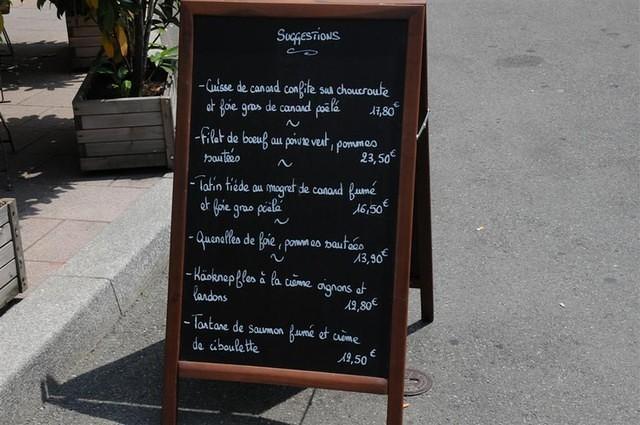 SUGGESTIONS
- Cuisse de canard confite sur choucroute
et foie gras de canard poêlé 17,80€
~
- Filet de boeuf au poivre vert, pommes
sautées 23,50€
~
- Tatin tiède au magret de canard fumé
et foie gras poêlé 16,50€
~
- Quenelles de foie, pommes sautées
13,90€
~
- Käsknepfles à la crème oignons et
lardons 12,80€
- Tartare de saumon fumé et crème
de ciboulette 12,50€